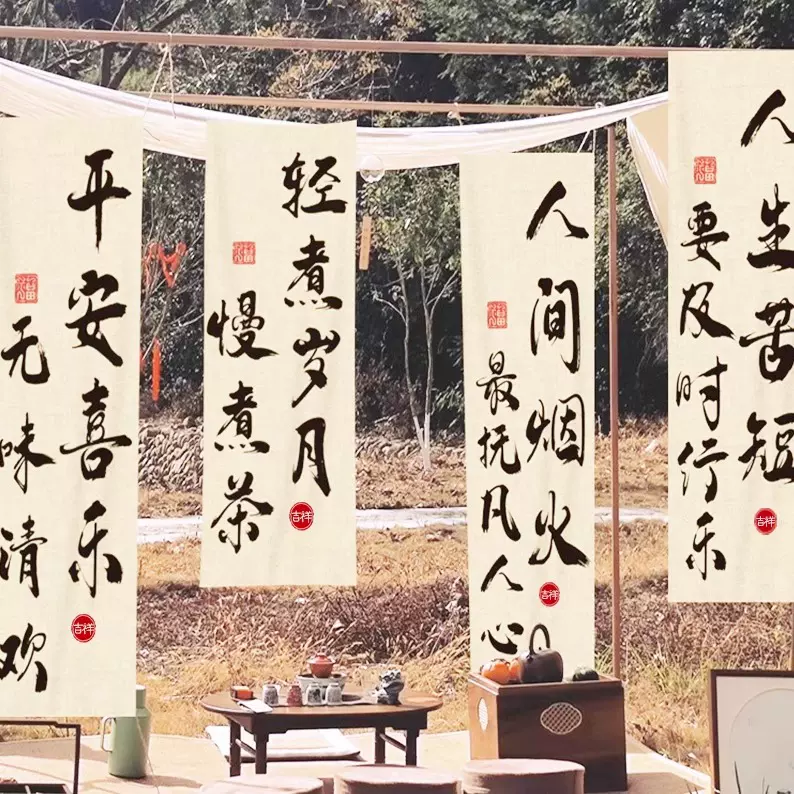 平安喜乐
吉祥
无味清欢
轻煮岁月
吉祥
慢煮茶
人间烟火
吉祥
最抚凡人心
人生苦短
吉祥
要及时行乐